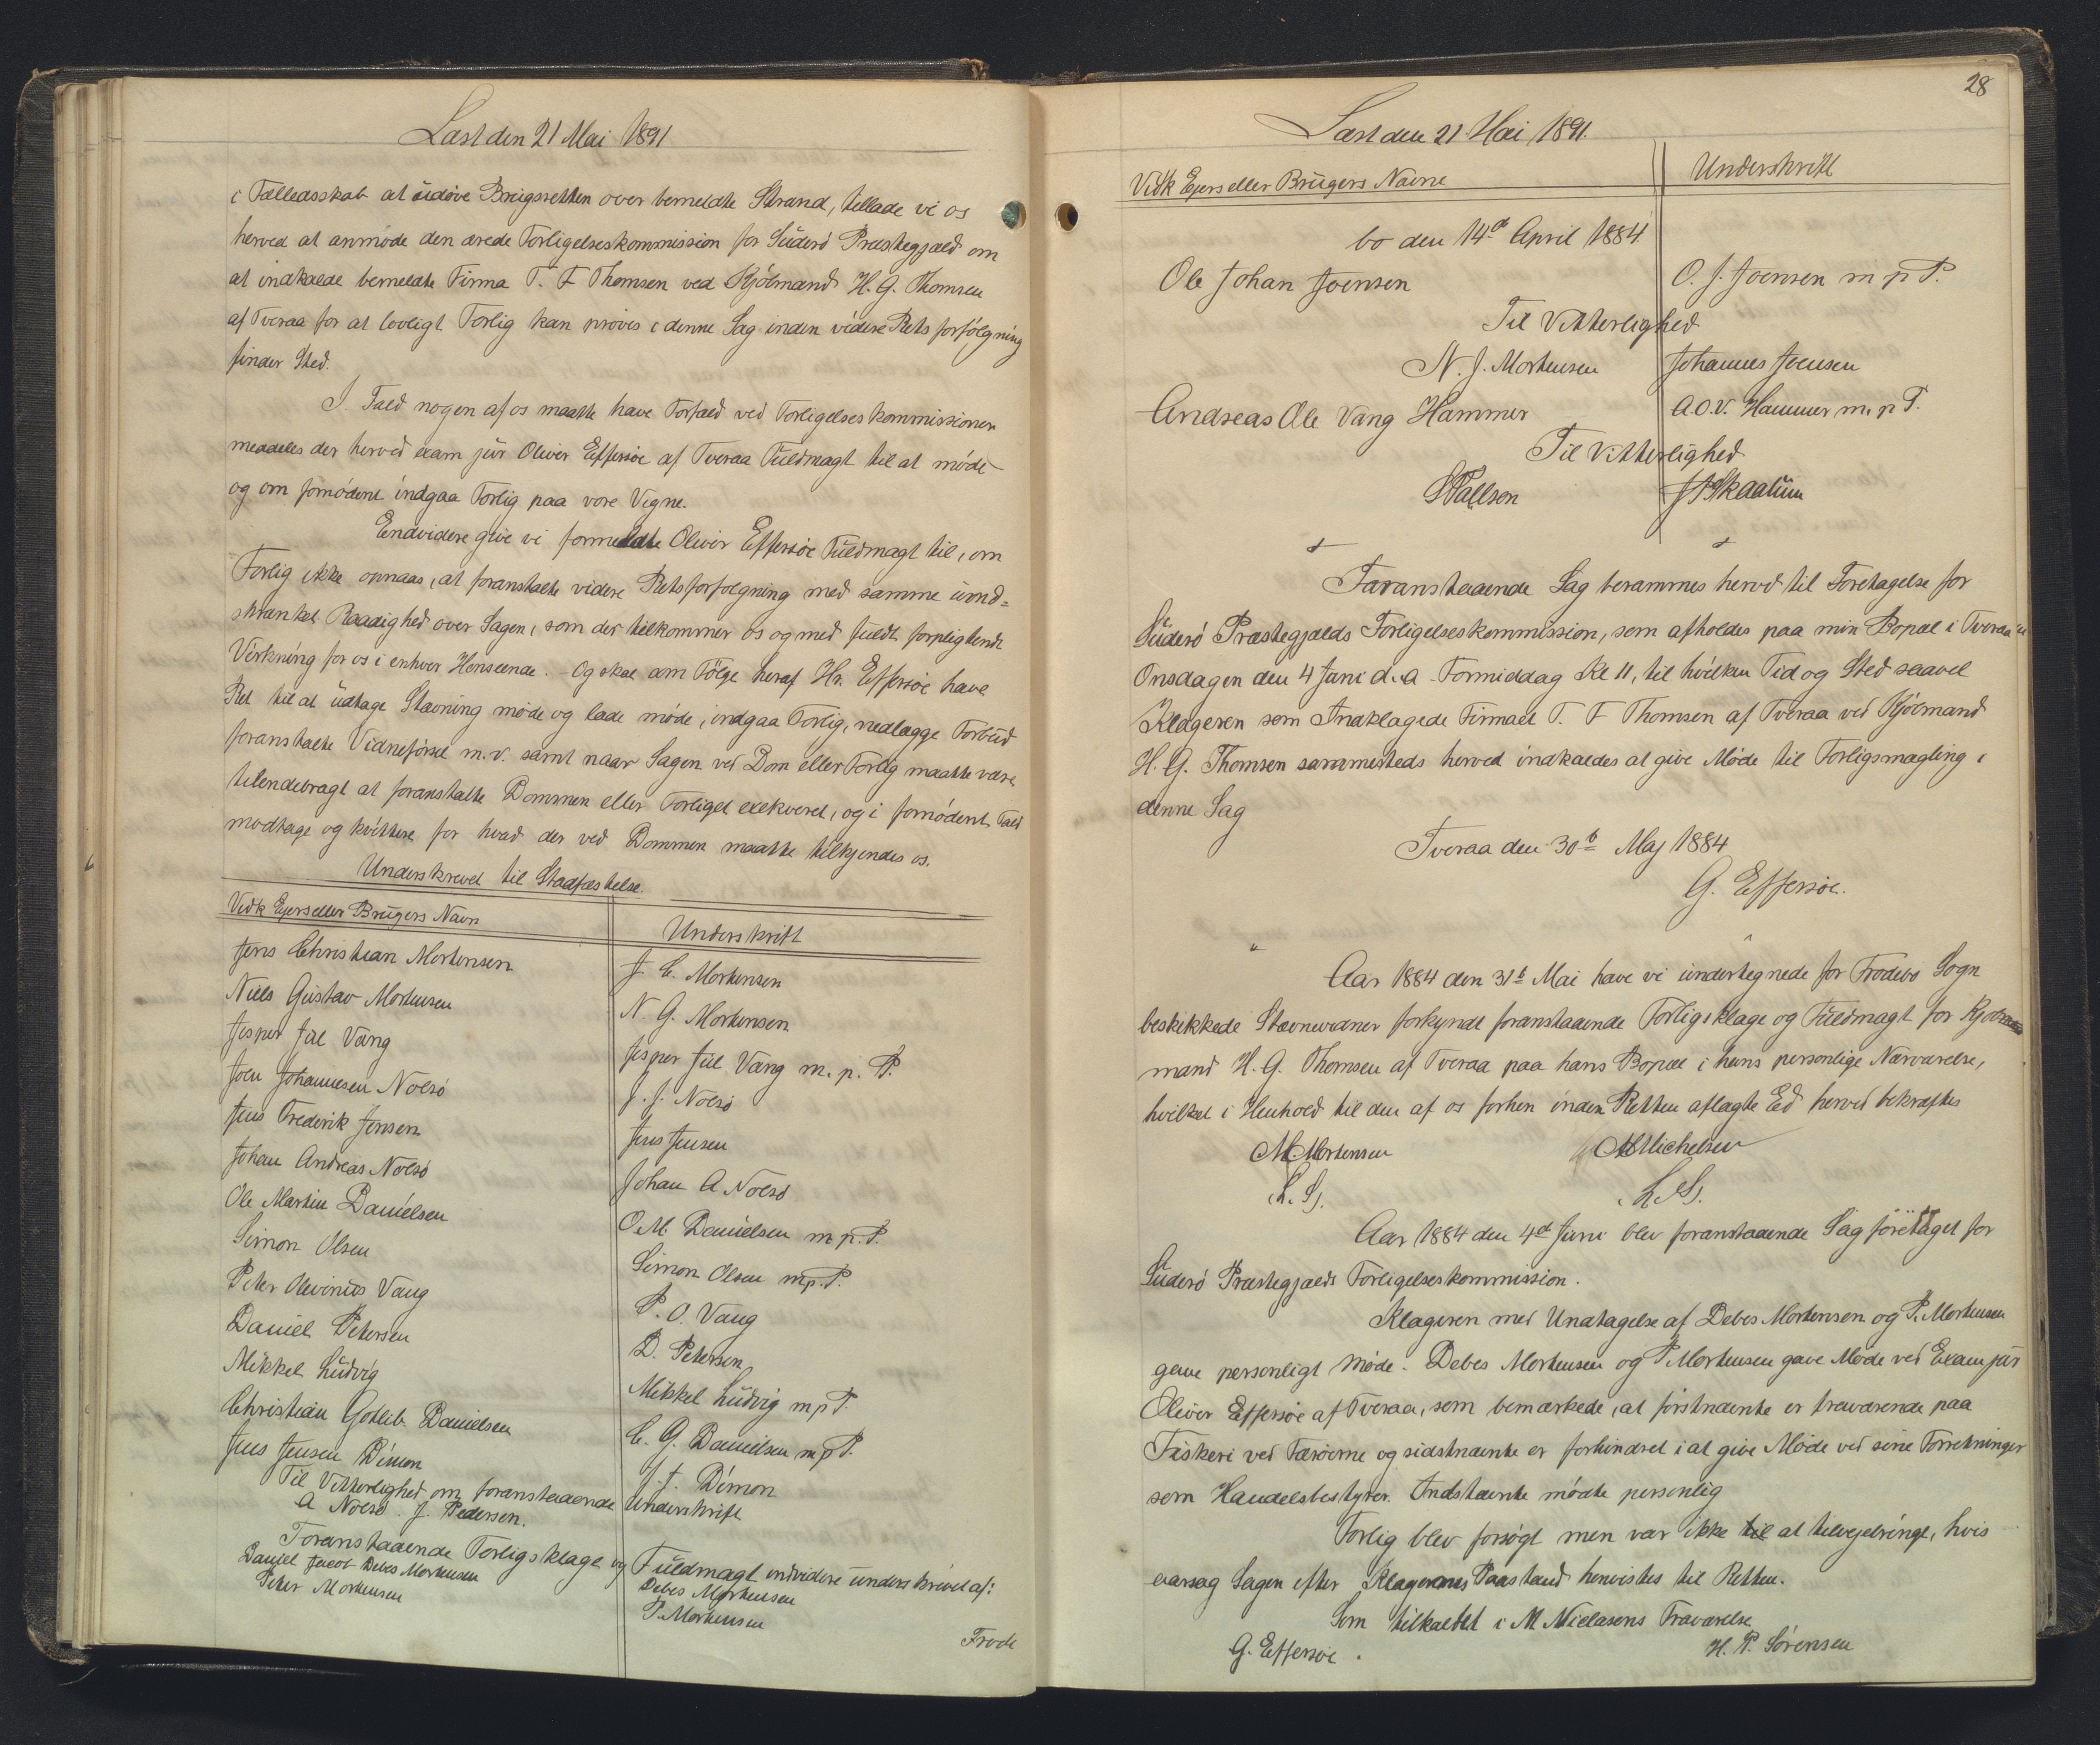 Læst den 21 Mai 1891
i Fælledsskab at udøve Brugsretten over bemeldte Strand, tillade vi os
herved at anmode den ærede Forligelseskommission for Suderö Præstegjæld om
at indkalde bemeldte Firma T. F Thomsen ved Kjöbmand H. G. Thomsen
af Tveraa for at lovligt Forlig kan pröves i denne Sag inden videre Rets forfölgning
finder Sted.
I Fald nogen af os maatte have Forfald ved Forligelseskommissionen
meddeles der herved exam jur Oliver Effersöe af Tveraa Fuldmagt til at möde
og om fornödent indgaa Forlig paa vore Vegne.
Endvidere give vi formeldte Oliver Effersöe Fuldmagt til, om
Forlig ikke opnaas, at foranstalte videre Retsforfølgning med samme uind=
skrænket Raadighed over Sagen, som der tilkommer os og med fuldt forpligtende
Virkning for os i enhver Henseende. - Og skal som Fölge heraf Hr. Effersöe have
Ret til at udtage Stævning møde og lade møde, indgaa Forlig, nedlægge Forbud
foranstalte Vidneførsel m.v. samt naar Sagen ved Dom eller Forlig maatte være
tilendebragt at foranstalte Dommen eller Forliget exekveret, og i fornödent Fald
modtage og kvittere for hvad der ved Dommen maatte tilkjendes os.
Underskrevet til Stadfæstelse.
Vedk Ejers eller Brugers Navn Underskrift
Jens Christian Mortensen J. C. Mortensen
Niels Gustav Mortensen N. G. Mortensen
Jesper Juel Vang Jesper Juel Vang m. p. P.
Joen Johannesen Nolsö J. J. Nolsö
Jens Frederik Jensen Jens Jensen
Johan Andreas Nolsö Johan A Nolsö
Ole Martin Danielsen O.M. Danielsen m. p. P.
Simon Olsen Simon Olsen mp. P.
Peter Olevinus Vang P. O. Vang
Daniel Petersen D. Petersen
Mikkel Ludvig Mikkel Ludvig m p P.
Christian Gotlib Danielsen C. G. Danielsen m p P.
Jens Jensen Dimon J. J. Dimon
Til Vitterlighed om foranstaaende Underskrift
A Nolsö. J. Pedersen.
Foranstaaende Forligsklage og Fuldmagt endvidere underskrevet af:
Daniel Jacob Debes Mortensen Debes Mortensen
Peter Mortensen P. Mortensen
Frode
28
Læst den 21 Mai 1891.
Vedk Ejers eller Brugers Navne Underskrift
bo den 14de April 1884
Ole Johan Joensen O. J. Joensen m p P.
Til Vitterlighed
N. J. Mortensen Johannes Joensen
Andreas Ole Vang Hammer A.O.V. Hammer m. p P.
Til Vitterlighed
Skaalum
Foranstaaende Sag berammes herved til Foretagelse for
Suderö Præstegjælds Forligelseskommission, som afholdes paa min Bopæl i Tveraa
Onsdagen den 4 Juni d. a Formiddag Kl 11, til hvilken Tid og Sted saavel
Klageren som Indklagede Firmaet T. F Thomsen af Tveraa ved Kjöbmand
H. G. Thomsen sammesteds herved indkaldes at give Møde til Forligsmægling i
denne Sag
Tveraa den 30te Maj 1884
G. Effersöe.
Aar 1884 den 31te Mai have vi undertegnede for Frodebö Sogn
beskikkede Stævnevidner forkyndt foranstaaende Forligsklage og Fuldmagt for Kjöb
mand H. G. Thomsen af Tveraa paa hans Bopæl i hans personlige Nærværelse,
hvilket i Henhold til den af os forhen inden Retten aflagte Ed herved bekræftes
M Mortensen Michelsen
L. S. L. S.
Aar 1884 den 4de Juni blev foranstaaende Sag foretaget for
Suderö Præstegjælds Forligelseskommission.
Klageren med Undtagelse af Debes Mortensen og P. Mortensen
gave personligt Møde. Debes Mortensen og P Mortensen gave Møde ved Exam jur
Oliver Effersöe af Tveraa, som bemærkede, at förstnævnte er fraværende paa
Fiskeri ved Færöerne og sidstnævnte er forhindret i at give Møde ved sine Forretninger
som Handelsbestyrer. Indstævnte mödte personlig
Forlig blev forsögt men var ikke til at tilvejebringe, hvis
aarsag Sagen efter Klagernes Paastand henvistes til Retten.
Som tilkaldet i M Nielasens Fraværelse
G. Effersöe. H. P. Sörensen